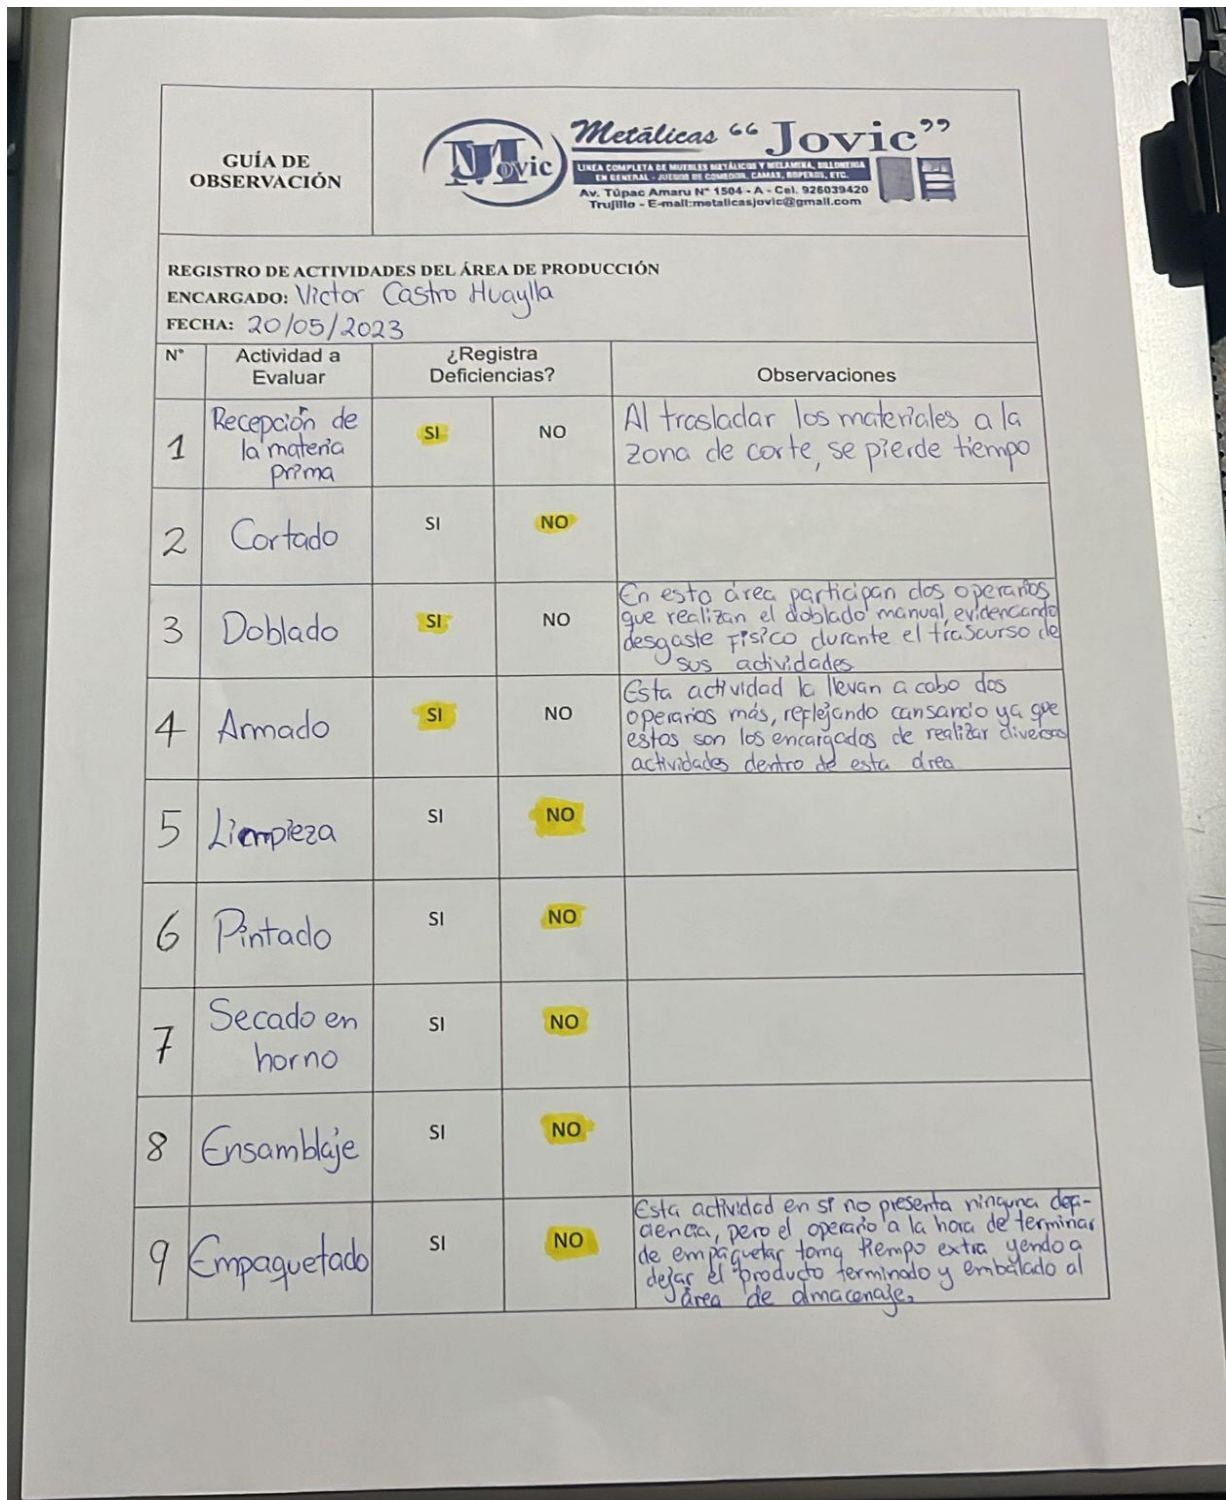 GUÍA DE
OBSERVACIÓN
MJovic
Metálicas “Jovic”
LINEA COMPLETA DE MUEBLES METÁLICOS Y MELAMINA, SILLONERIA
EN GENERAL - JUEGOS DE COMEDOR, CAMAS, ROPEROS, ETC.
Av. Túpac Amaru N° 1504 - A - Cel. 926039420
Trujillo - E-mail:metalicasjovic@gmail.com
REGISTRO DE ACTIVIDADES DEL ÁREA DE PRODUCCIÓN
ENCARGADO: Victor Castro Huaylla
FECHA: 20/05/2023
N° Actividad a Evaluar ¿Registra Deficiencias? Observaciones
1
Recepción de
la materia
prima
SI NO
Al trasladar los materiales a la
zona de corte, se pierde tiempo
2 Cortado SI NO
3 Doblado SI NO
En esta área participan dos operarios
que realizan el doblado manual, evidencando
desgaste Físico durante el trascurso de
sus actividades
4 Armado SI NO
Esta actividad la llevan a cabo dos
operarios más, reflejando cansando ya que
estos son los encargados de realizar diversas
actividades dentro de esta área
5 Limpieza SI NO
6 Pintado SI NO
7
Secado en
horno
SI NO
8 Ensamblaje SI NO
9 Empaquetado SI NO
Esta actividad en si no presenta ninguna defi-
ciencia, pero el operario a la hora de terminar
de empaquetar toma tiempo extra yendo a
dejar el producto terminado y embalado al
área de almacenaje.